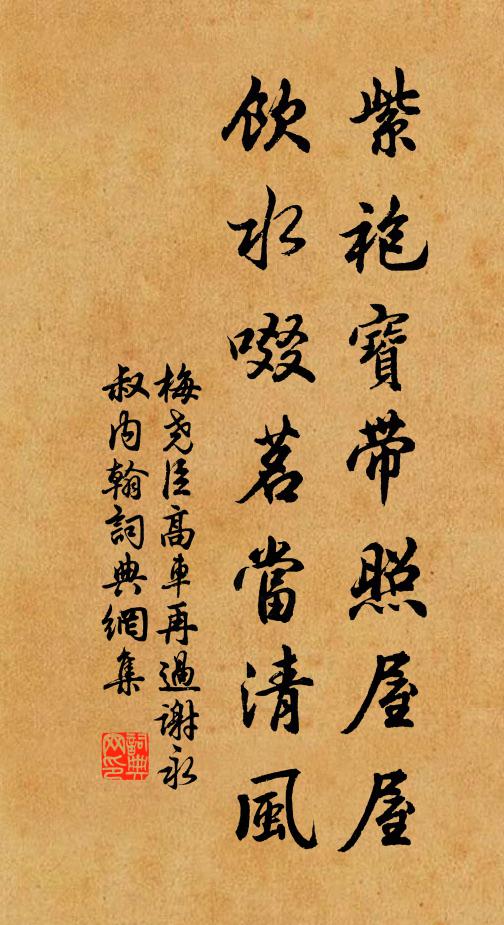 紫袍寶帶照屋屋
飲水啜茗當清風
梅堯臣高車再過謝永
叔内翰詞典網集
詞典
网印